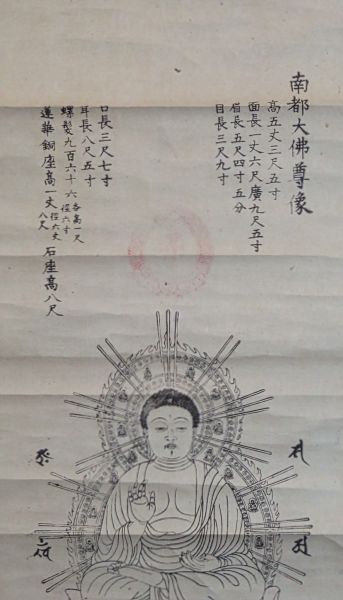 南都大佛尊像
高五丈三尺五寸
面長一丈六尺廣九尺五寸
眉長五尺四寸五分
目長三尺九寸
口長三尺七寸
耳長八尺五寸
螺髪九百六十六各高一尺径六寸
蓮華銅座高一丈径六丈八尺 石座高八尺